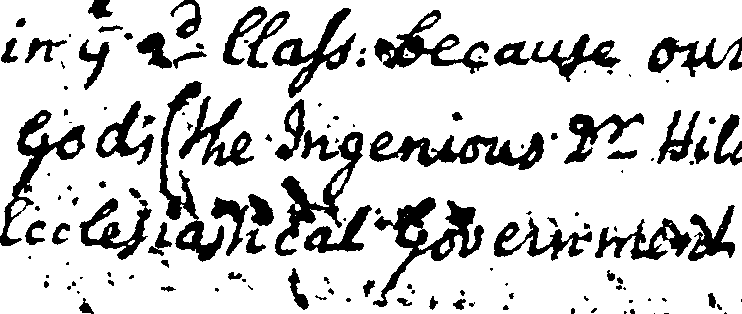 in yᵉ 2ᵈ Class: because our
Gods (the Ingenious Dr Hil
Ecclesiastical Government